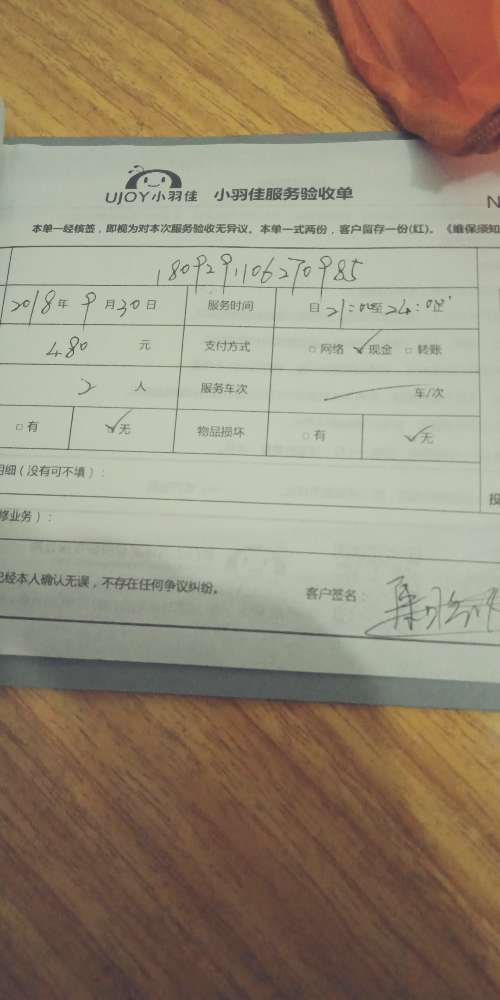 UJOY小羽佳 小羽佳服务验收单 N
本单一经核签，即视为对本次服务验收无异议。本单一式两份，客户留存一份(红)。《维保须知
1809291106270985
2018年9月30日 服务时间 日21:00至24:00
480元 支付方式 □网络 ✓现金 □转账
2人 服务车次 车/次
□有 ✓无 物品损坏 □有 ✓无
明细（没有可不填）：
修业务）： 投
已经本人确认无误，不存在任何争议纠纷。 客户签名：